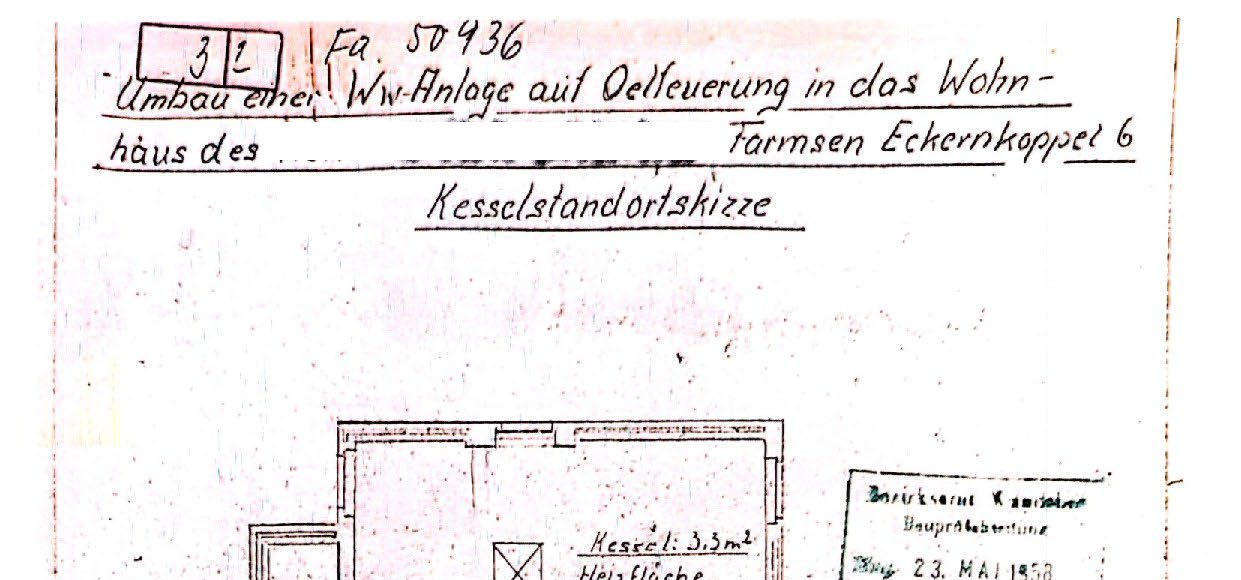 3 2
Fa. 50936
Umbau einer Ww-Anlage auf Oelfeuerung in das Wohn-
haus des Farmsen Eckernkoppel 6
Kesselstandortskizze
Kessel: 3,3 m²
Heizfläche
Bezirksamt Wandsbek
Bauprüfabteilung
23. MAI 1958